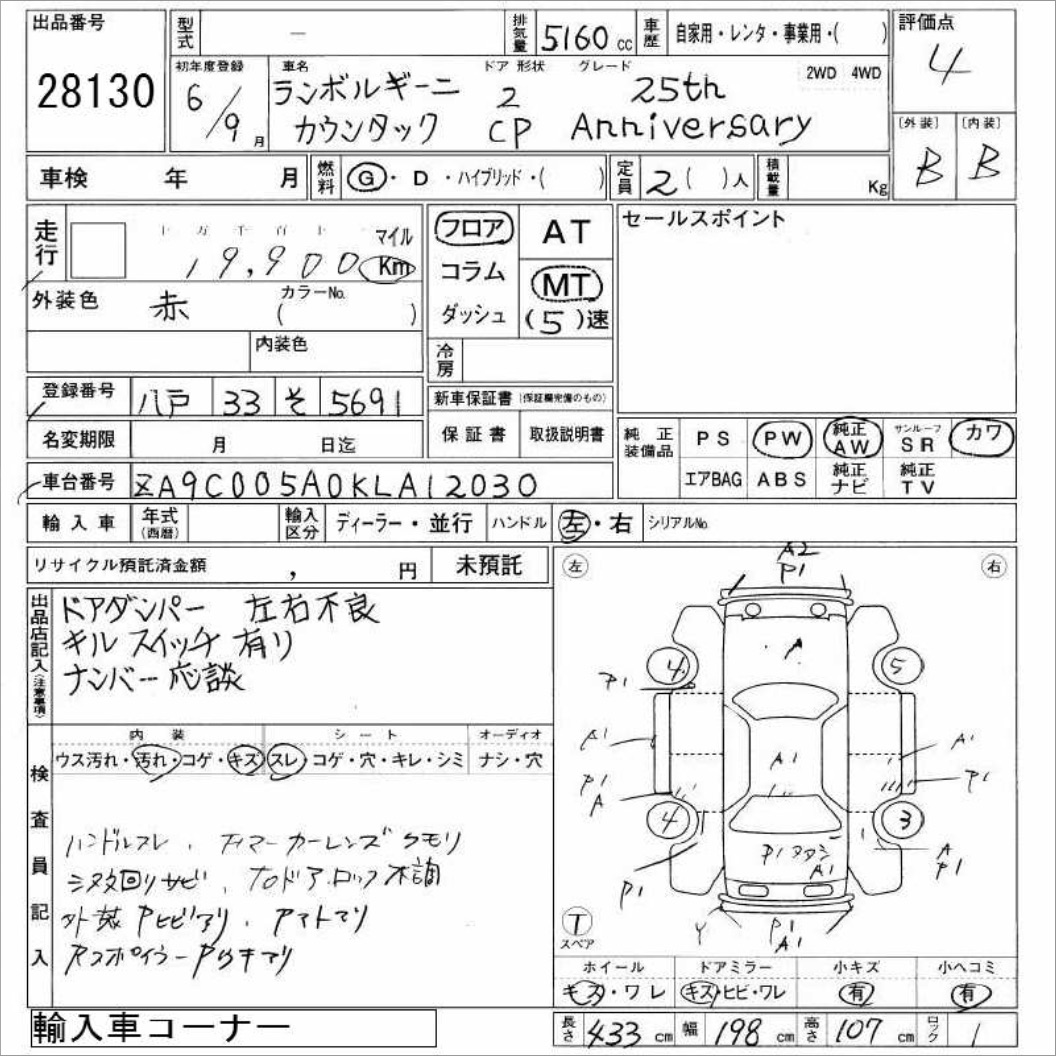 出品番号
28130
型式 ー 排気量 5160 cc 車歴 自家用・レンタ・事業用・( )
評価点
4
初年度登録 6/9月
車名 ランボルギーニ カウンタック
ドア 形状 2 CP
グレード 25th Anniversary
2WD 4WD
〔外装〕 B 〔内装〕 B
車検 年 月 燃料 G・D・ハイブリッド・( ) 定員 2( )人 積載量 Kg
走行 十 万 千 百 十 マイル
19,900 Km
外装色 赤 カラーNo. ( )
内装色
フロア
コラム
ダッシュ
AT
MT
(5)速
冷房
セールスポイント
登録番号 八戸 33 そ 5691
新車保証書 (保証欄完備のもの)
名変期限 月 日迄
保証書 取扱説明書
純正装備品 PS PW 純正AW サンルーフSR カワ
エアBAG ABS 純正ナビ 純正TV
車台番号 ZA9C005A0KLA12030
輸入車 年式(西暦) 輸入区分 ディーラー・並行 ハンドル 左・右 シリアルNo.
リサイクル預託済金額 , 円 未預託
出品店記入(注意事項)
ドアダンパー 左右不良
キルスイッチ 有り
ナンバー応談
内装 シート オーディオ
ウス汚れ・汚れ・コゲ・キズ スレ・コゲ・穴・キレ・シミ ナシ・穴
検査員記入
ハンドルスレ、
マーカーレンズクモリ
下回りサビ、
ドアロック不調
外装Pヒビアリ、
左 右
A2
P1
A
4 5
P1
A1 A1 A1
P1 P1
A
4 3
P1
A1
A
P1
P1
Y P1
A1
T
スペア
ホイール ドアミラー 小キズ 小ヘコミ
キズ・ワレ キズ・ヒビ・ワレ 有 有
長さ 433 cm 幅 198 cm 高さ 107 cm ロック 1
輸入車コーナー